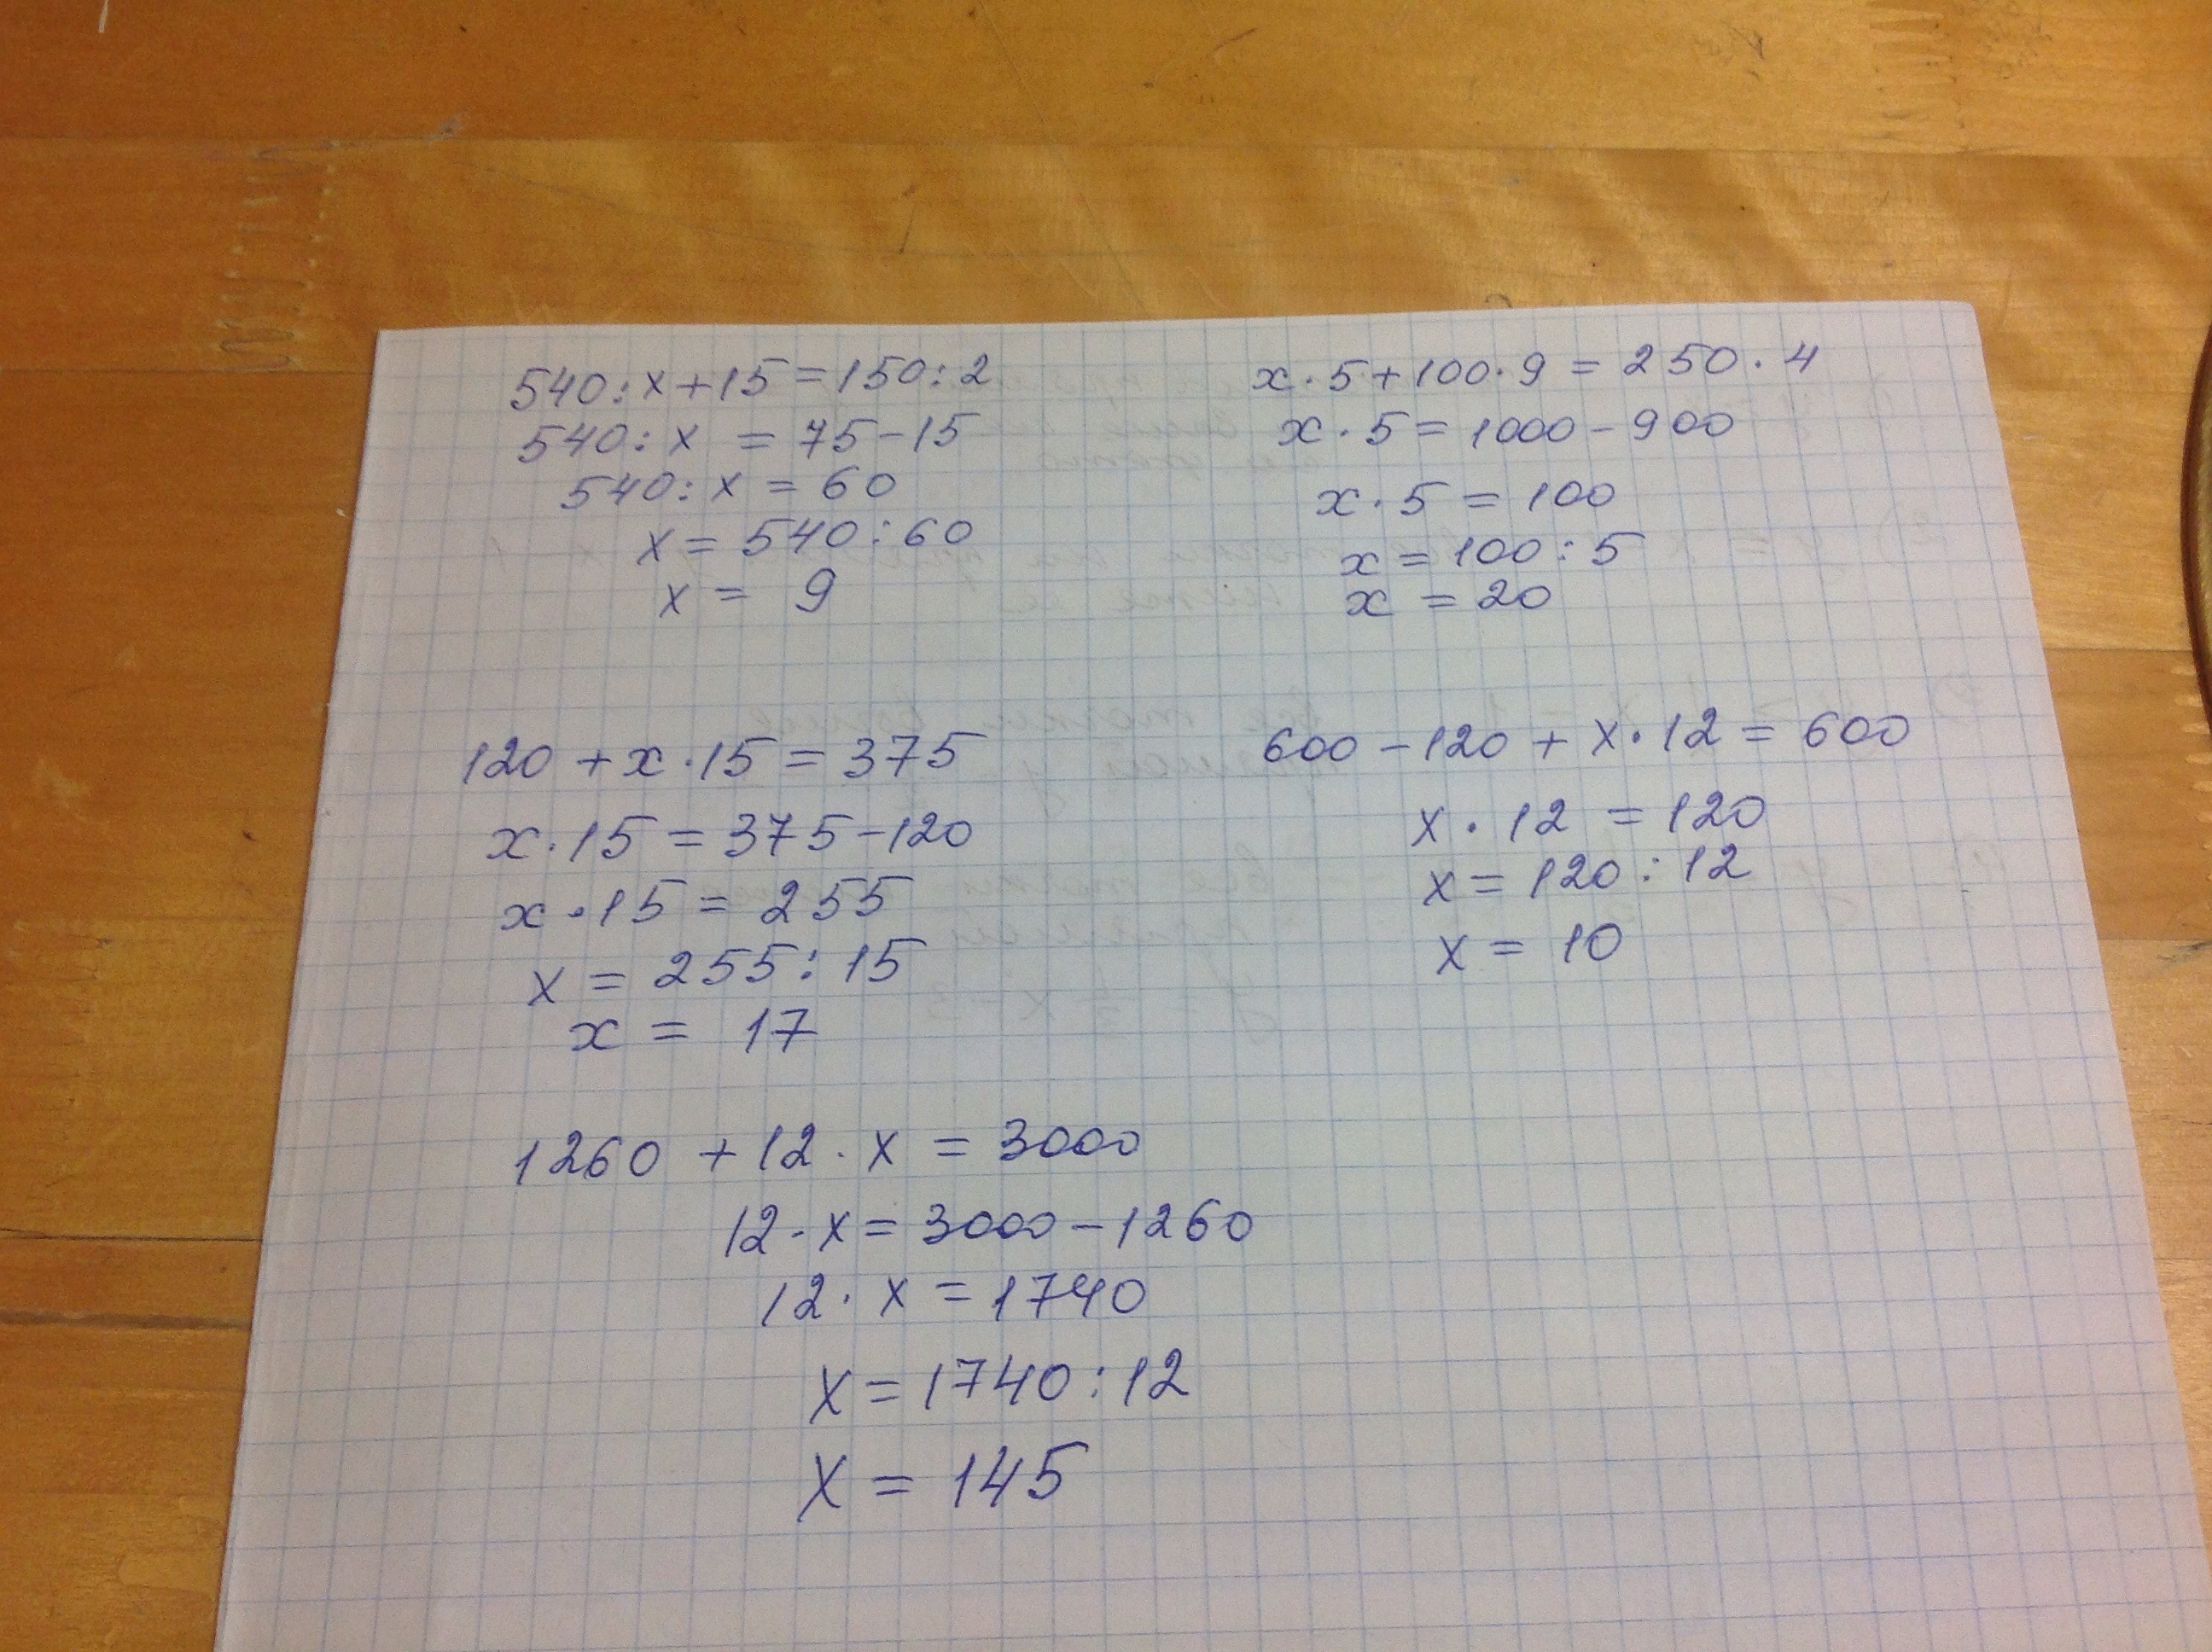 540:x+15=150:2
540:x = 75-15
540:x = 60
x = 540:60
x = 9
x·5+100·9 = 250·4
x·5 = 1000-900
x·5 = 100
x = 100:5
x = 20
120 + x·15 = 375
x·15 = 375-120
x·15 = 255
x = 255:15
x = 17
600-120 + x·12 = 600
x·12 = 120
x = 120:12
x = 10
1260 + 12·x = 3000
12·x = 3000-1260
12·x = 1740
x = 1740:12
x = 145